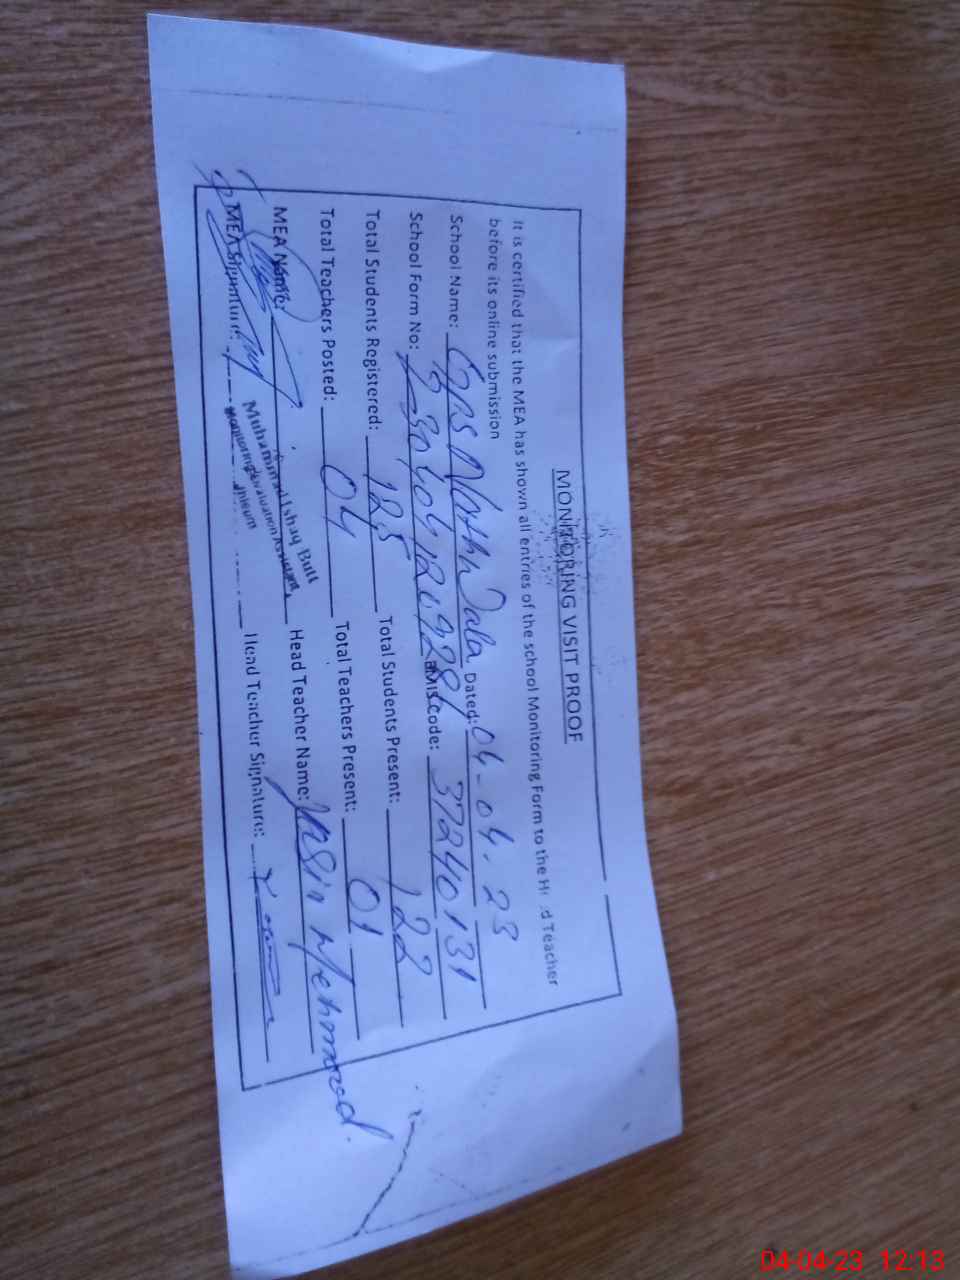 MONITORING VISIT PROOF
It is certified that the MEA has shown all entries of the school Monitoring Form to the Head Teacher
before its online submission
School Name: GPS Nathwala Dated: 04-04-23
School Form No: EMIS Code: 37240131
Total Students Registered: 125 Total Students Present: 122
Total Teachers Posted: 04 Total Teachers Present: 01
MEA Name: Muhammad Ishaq Butt Head Teacher Name: Yasin Mehmood.
Monitoring & Evaluation Assistant
Jhleum
MEA Signature: Head Teacher Signature:
04-04-23 12:13